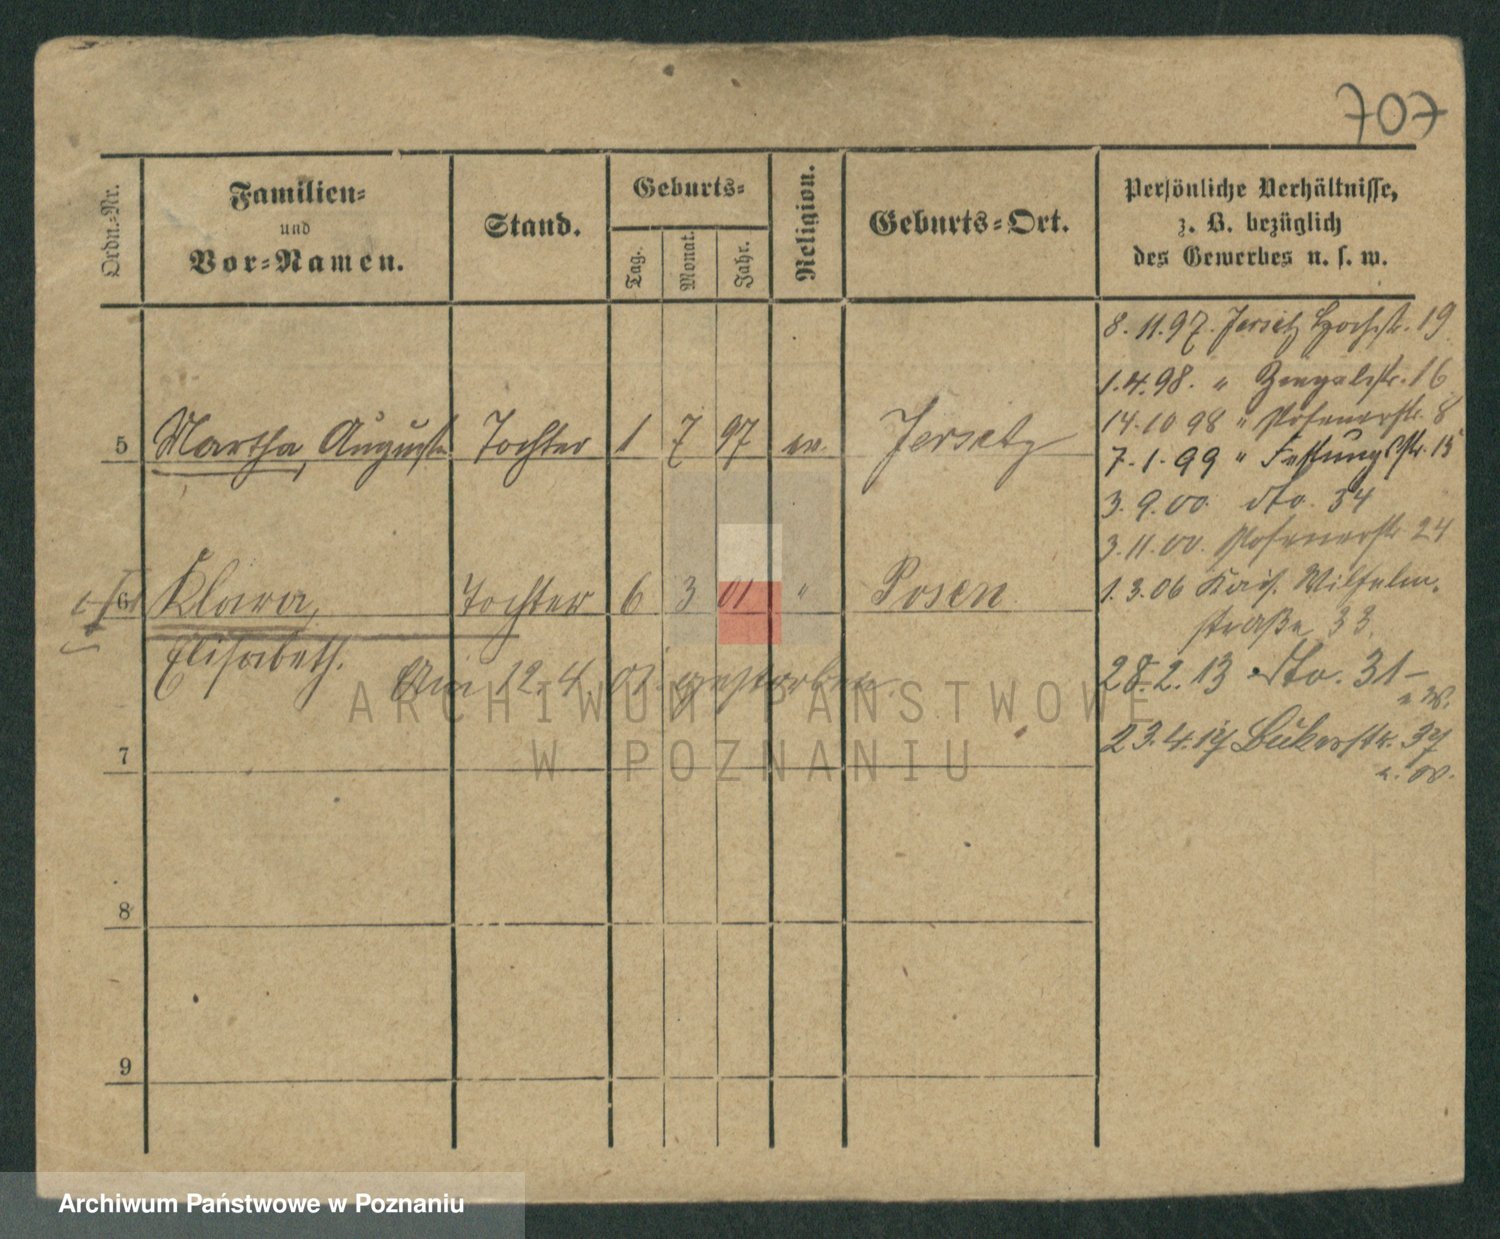 707
Ordn.-Nr.
Familien-
und
Vor-Namen.
Stand.
Geburts-
Tag.
Monat.
Jahr.
Religion.
Geburts-Ort.
Persönliche Verhältnisse,
z. B. bezüglich
des Gewerbes u. s. w.
5 Martha, Auguste Tochter 1 7 97 ev. Jersitz
6 Klara, Tochter 6 3 01 " Posen
Elisabeth.
Am 12. 4. 01. gestorben.
7
8
9
8. 11. 97. Jersitz Hochstr. 19
1. 4. 98. " 16
14. 10 98 " Posenerstr. 8
7. 1. 99 " Festungsstr. 15
3. 9. 00. dto. 34
3. 11. 00. Posenerstr 24
1. 3. 06 Kais. Wilhelm-
straße 33.
28. 2. 13 dto. 31
23. 4. 17 Bukerstr. 37
ARCHIWUM PAŃSTWOWE
W POZNANIU
Archiwum Państwowe w Poznaniu